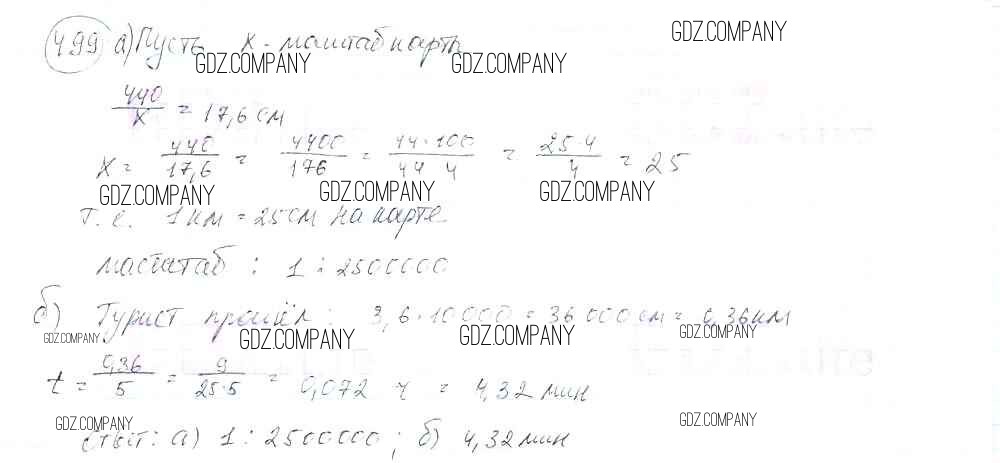 499 а) Пусть x - масштаб карты
GDZ.COMPANY
GDZ.COMPANY GDZ.COMPANY
440/x = 17,6 см
x = 440/17,6 = 4400/176 = 44·100/44 4 = 25·4/4 = 25
GDZ.COMPANY GDZ.COMPANY GDZ.COMPANY
т.е. 1 км = 25 см на карте
масштаб : 1 : 2500000
б) Турист прошёл : 3,6·10000 = 36000 см = 0,36 км
GDZ.COMPANY GDZ.COMPANY GDZ.COMPANY GDZ.COMPANY
t = 0,36/5 = 9/25·5 = 0,072 ч = 4,32 мин
GDZ.COMPANY GDZ.COMPANY
Ответ: а) 1 : 2500000 ; б) 4,32 мин